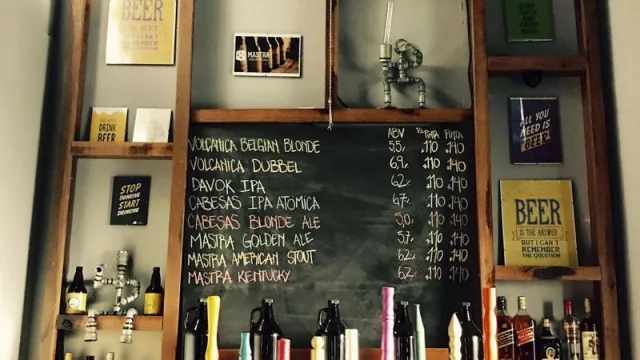 BEER
IS THE ANSWER
BUT I CAN'T
REMEMBER
THE QUESTION
MASTRA
DRINK
BEER
STOP
DRINKING
START
DRINKING
ABV PINTA PINTA
VOLCANICA BELGIAN BLONDE 5,5 110 140
VOLCANICA DUBBEL 6,9 110 140
DAVOK IPA 6,2 110 140
CABESAS IPA ATOMICA 6,7 110 140
CABESAS BLONDE ALE 5,0 110 140
MASTRA GOLDEN ALE 5,7 110 140
MASTRA AMERICAN STOUT 6,2 110 140
MASTRA KENTUCKY 6,2 110 140
ALL YOU
NEED IS
BEER
BEER
IS THE ANSWER
BUT I CAN'T
REMEMBER
THE QUESTION